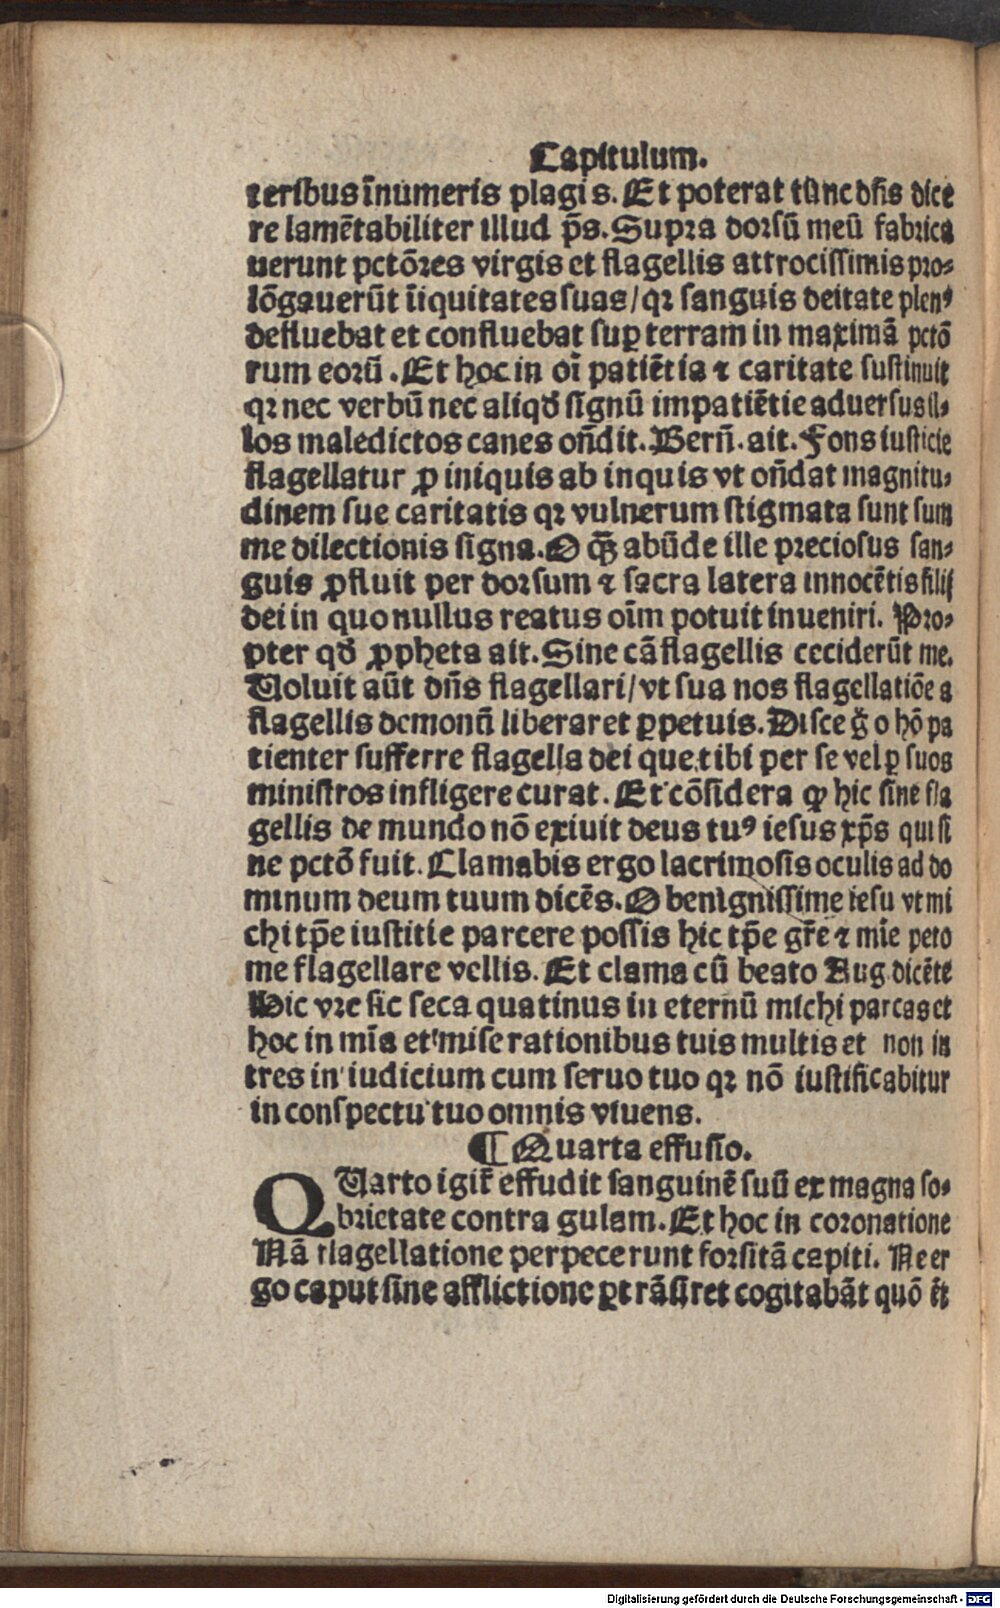 Capitulum.
teribus īnumeris plagis. Et poterat tūnc dn̄s dice
re lamētabiliter illud p̄s. Supra dorsū meū fabrica
uerunt pctōres virgis et flagellis attrocissimis pro-
lōgauerūt īiquitates suas/qꝛ sanguis deitate plenꝰ
defluebat et confluebat suꝑ terram in maximā pctō
rum eorū. Et hoc in oī patiētia ⁊ caritate sustinuit
qꝛ nec verbū nec aliqđ signū impatiētie aduersus il-
los maledictos canes on̄dit. Bern̄. ait. Fons iusticie
flagellatur ꝓ iniquis ab inquis vt on̄dat magnitu-
dinem sue caritatis qꝛ vulnerum stigmata sunt sum
me dilectionis signa. O qꝫ̄ abūde ille preciosus san-
guis ꝓfluit per dorsum ⁊ sacra latera innocētis filij
dei in quo nullus reatus oīm potuit inueniri. Pro-
pter qđ ꝓpheta ait. Sine cā flagellis ceciderūt me.
Uoluit aūt dn̄s flagellari/vt sua nos flagellatiōe a
flagellis demonū liberaret ꝑpetuis. Disce g̊ o hō pa
tienter sufferre flagella dei que tibi per se vel ꝑ suos
ministros infligere curat. Et cōsidera ꝙ hic sine fla
gellis de mundo nō exiuit deus tuꝰ iesus xp̄s qui si
ne pctō fuit. Clamabis ergo lacrimosis oculis ad do
minum deum tuum dicēs. O benignissime iesu vt mi
chi tp̄e iustitie parcere possis hic tp̄e gr̄e ⁊ mīe peto
me flagellare vellis. Et clama cū beato Aug dicēte
Hic vre hic seca quatinus in eternū michi parcas et
hoc in mīa et miserationibus tuis multis et non in
tres in iudicium cum seruo tuo qꝛ nō iustificabitur
in conspectu tuo omnis viuens.
¶ Quarta effusio.
QUarto igit̄ effudit sanguinē suū ex magna so-
brietate contra gulam. Et hoc in coronatione
Nā flagellatione perpecerunt forsitā capiti. Ne er
go caput sine afflictione ꝑtrāsiret cogitabāt quō ēt
Digitalisierung gefördert durch die Deutsche Forschungsgemeinschaft - DFG